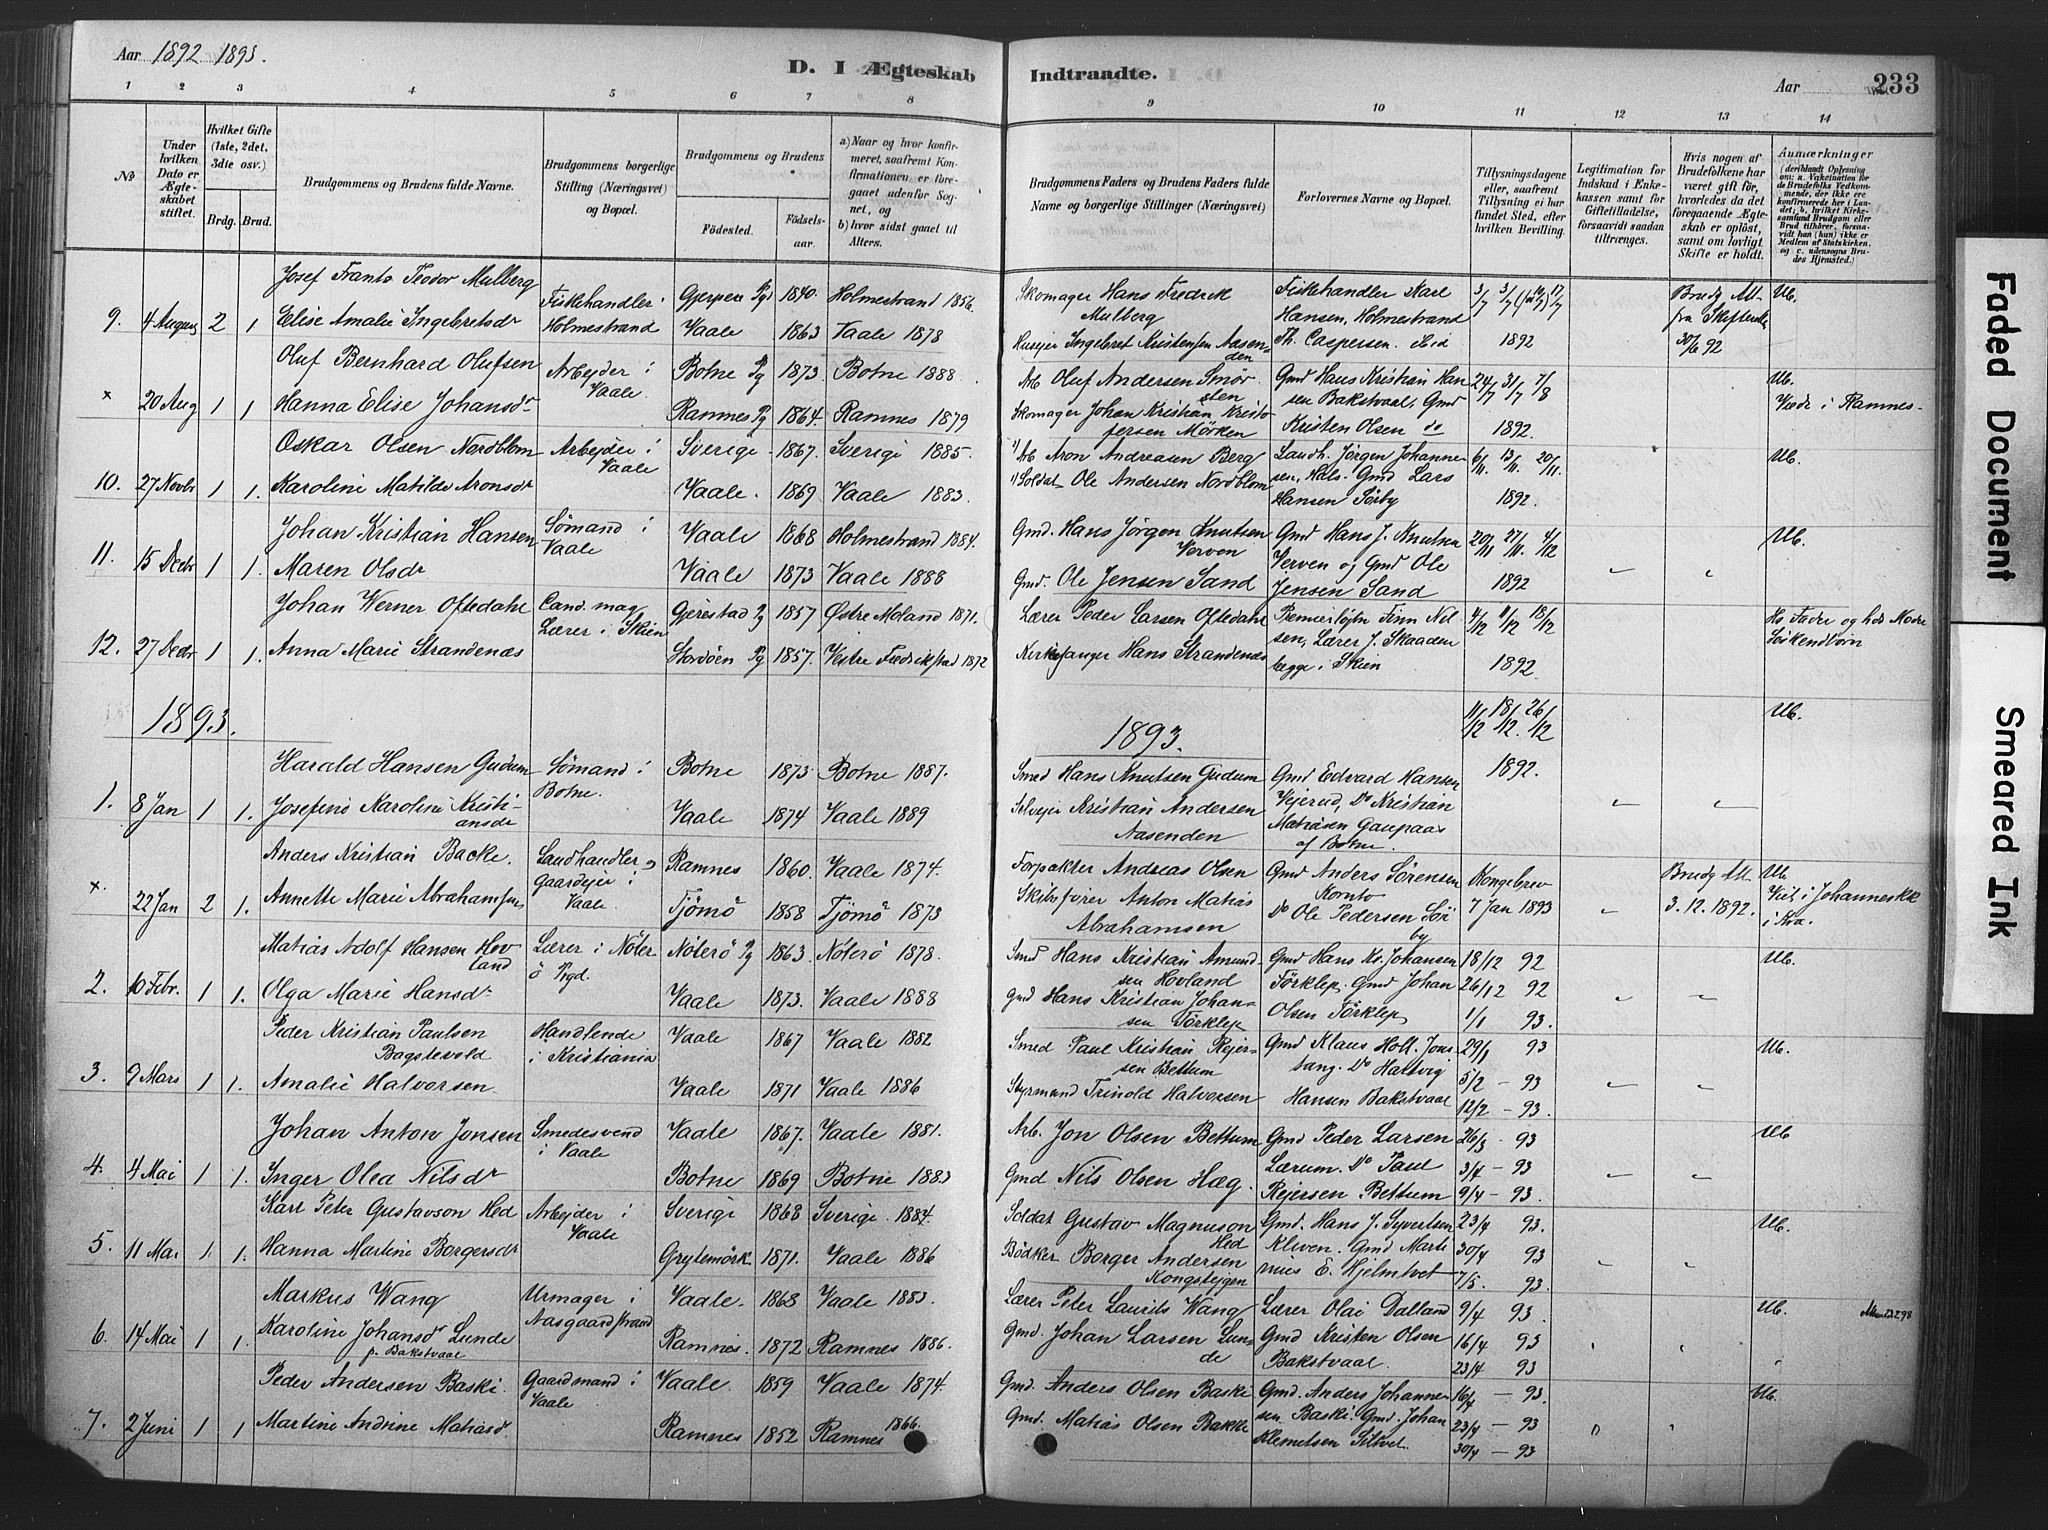 Aar 1892 1893.
D. I Ægteskab Indtraadte.
Aar 233
1 2 3 4 5 6 7 8 9 10 11 12 13 14
No
Under hvilken Dato er Ægteskabet stiftet.
Hvilket Gifte (1ste, 2det, 3die osv.)
Brdg. Brud.
Brudgommens og Brudens fulde Navne.
Brudgommens borgerlige Stilling (Næringsvei) og Bopæl.
Brudgommens og Brudens
Fødested. Fødselsaar.
a) Naar og hvor konfirmeret, saafremt Konfirmationen er foregaaet udenfor Sognet, og
b) hvor sidst gaaet til Alters.
Brudgommens Faders og Brudens Faders fulde Navne og borgerlige Stillinger (Næringsvei)
Forlovernes Navne og Bopæl.
Tillysningsdagene eller, saafremt Tillysning ei har fundet Sted, efter hvilken Bevilling.
Legitimation for Indskud i Enkekassen samt for Giftetilladelse, forsaavidt saadan tiltrænges.
Hvis nogen af Brudefolkene har været gift før, hvorledes da det foregaaende Ægteskab er opløst, samt om lovligt Skifte er holdt.
Anmærkninger (deriblandt Oplysning om: a. Vakcination for de Brudefolks Vedkommende, der ikke ere konfirmerede her i Landet; b. hvilket Kirkesamfund Brudgom eller Brud tilhører, forsaavidt han (hun) ikke er Medlem af Statskirken, og c. udensogns Brudes Hjemsted.)
9. 4 August 2 1
Josef Frants Teodor Mulberg Fiskehandler i Holmestrand Gjerpen Pgd 1840. Holmestrand 1856. Skomager Hans Fredrik Mulberg
Elise Amalie Ingebretsdr Vaale 1863 Vaale 1878 Husejer Ingebret Kristensen Aasenden
Fiskehandler Karl Hansen, Holmestrand Th. Caspersen ibid
1892
30/6 92
Ub.
x 20 Aug 1 1
Oluf Bernhard Olufsen Arbejder i Vaale Botne Pg 1873. Botne 1888. Arb Oluf Andersen Smørsten
Hanna Elise Johansdr Ramnes Pg 1864. Ramnes 1879 Skomager Johan Kristian Kristofersen Mørken
Gmd Hans Kristian Hansen Bakstvaal, Gmd Kristen Olsen do
24/7 31/7 7/8 1892.
Ub. Viede i Ramnes.
10. 27 Novbr 1 1.
Oskar Olsen Nordblom Arbejder i Vaale Sverige 1867. Sverige 1885. Arb Aron Andreasen Berg
Karoline Matilde Aronsdr Vaale. 1869 Vaale 1883. Soldat Ole Andersen Nordblom
Landh. Jørgen Johannesen, Hals. Gmd Lars Hansen Sørby
6/11. 13/11. 20/11. 1892.
Ub.
11. 15 Decbr 1 1.
Johan Kristian Hansen Sømand i Vaale Vaale 1868 Holmestrand 1884. Gmd. Hans Jørgen Knutsen Verven
Maren Olsdr Vaale 1873 Vaale 1888 Gmd. Ole Jensen Sand
Gmd Hans J. Knutsen Verven og Gmd Ole Jensen Sand
20/11 27/11. 4/12 1892
Ub.
12. 27 Decbr 1 1.
Johan Werner Oftedahl Cand. mag. Lærer i Skien Gjerestad Pg 1857 Østre Moland 1871. Lærer Peder Larsen Oftedahl
Anna Marie Strandenæs Stordöen Pg 1857. Vestre Fredrikstad 1872 Kirkesanger Hans Strandenæs
Premierløjtn Finn Nilsen, Lærer J. Skaaden begge i Skien
4/12 11/12 18/12 1892.
Hs Fader og hds Moder Søskendbørn
1893. 1893.
11/12 18/12. 26/12 1892. Ub.
1. 8 Jan 1 1.
Harald Hansen Gudum Sømand i Botne. Botne 1873 Botne 1887. Smed Hans Knutsen Gudum
Josefine Karoline Kristiansdr Vaale 1874 Vaale 1889 Selvejer Kristian Andersen Aasenden
Gmd Edvard Hansen Vejerud, Do Kristian Matiasen Gaupaas af Botne.
x. 22 Jan 2 1.
Anders Kristian Backe. Landhandler, Gaardejer i Vaale Ramnes 1860. Vaale 1874. Forpakter Andreas Olsen
Annette Marie Abrahamsen Tjømø 1858 Tjømø 1873 Skibsfører Anton Matias Abrahamsen
Gmd Anders Sørensen Konto Do Ole Pedersen Sörby
Kongebrev 7 Jan 1893
Brudg 3. 12. 1892.
Ub Viet i Johanneskk i Kra.
2. 10 Febr. 1 1.
Matias Adolf Hansen Hovland Lærer i Nøterö Prgd. Nøterø Pg 1863. Nøterö 1878. Smd Hans Kristian Amundsen Hovland
Olga Marie Hansdr Vaale 1873. Vaale 1888 Gmd Hans Kristian Johansen Törklep
Gmd Hans Kr. Johansen Törklep. Gmd Johan Olsen Törklep
18/12 92
26/12 92
1/1 93.
Ub.
3. 9 Mars 1 1.
Peder Kristian Paulsen Bagstevold Handlende i Kristiania Vaale 1867 Vaale 1882 Smed Paul Kristian Rejersen Bettum
Amalie Halvorsen. Vaale 1871 Vaale 1886 Styrmand Trinold Halvorsen
Gmd Klaus Holt. Do Hartvig Hansen Bakstvaal
29/1 93
5/2 - 93
12/2 - 93.
Ub.
4. 4 Mai 1 1.
Johan Anton Jonsen Smedesvend i Vaale Vaale 1867. Vaale 1881. Arb. Jon Olsen Bettum
Inger Olea Nilsdr Botne 1869 Botne 1883 Gmd Nils Olsen Hæg.
Gmd Peder Larsen Lærum. Do Paul Rejersen Bettum
26/3 - 93
3/4 - 93
9/4 - 93.
Ub
5. 11 Mai 1 1.
Karl Peter Gustavson Hed Arbejder i Vaale Sverige 1868 Sverige. 1884. Soldat Gustav Magnuson Hed
Hanna Martine Borgersdr Grytemörk 1871. Vaale 1886 Bödker Borger Andersen Kongstejgen
Gmd. Hans J. Syvertsen Kleven. Gmd Martinius E. Hjelmtvet
23/4 93.
30/4 93
7/5. 93.
Ub.
6. 14 Mai 1 1.
Markus Wang Urmager i Aasgaardstrand Vaale. 1863 Vaale 1883. Lærer Peter Laurits Wang
Karoline Johansdr Lunde p. Bakstvaal Ramnes. 1872 Ramnes 1886. Gmd. Johan Larsen Lunde
Lærer Olai Dalland Gmd Kristen Olsen Bakstvaal.
9/4 93.
16/4 93
23/4 93
Ub.
7. 2 Juni 1 1
Peder Andersen Baski. Gaardmand i Vaale Vaale. 1859 Vaale 1874. Gmd. Anders Olsen Baske
Martine Andrine Matiasdr. Ramnes 1852 Ramnes 1866. Gmd. Matias Olsen Bakke
Gmd. Anders Johannesen. Baski. Gmd. Johan Klemetsen Siltvet.
16/4 - 93.
23/4 - 93
30/4 - 93
Ub.
Faded Document
Smeared Ink